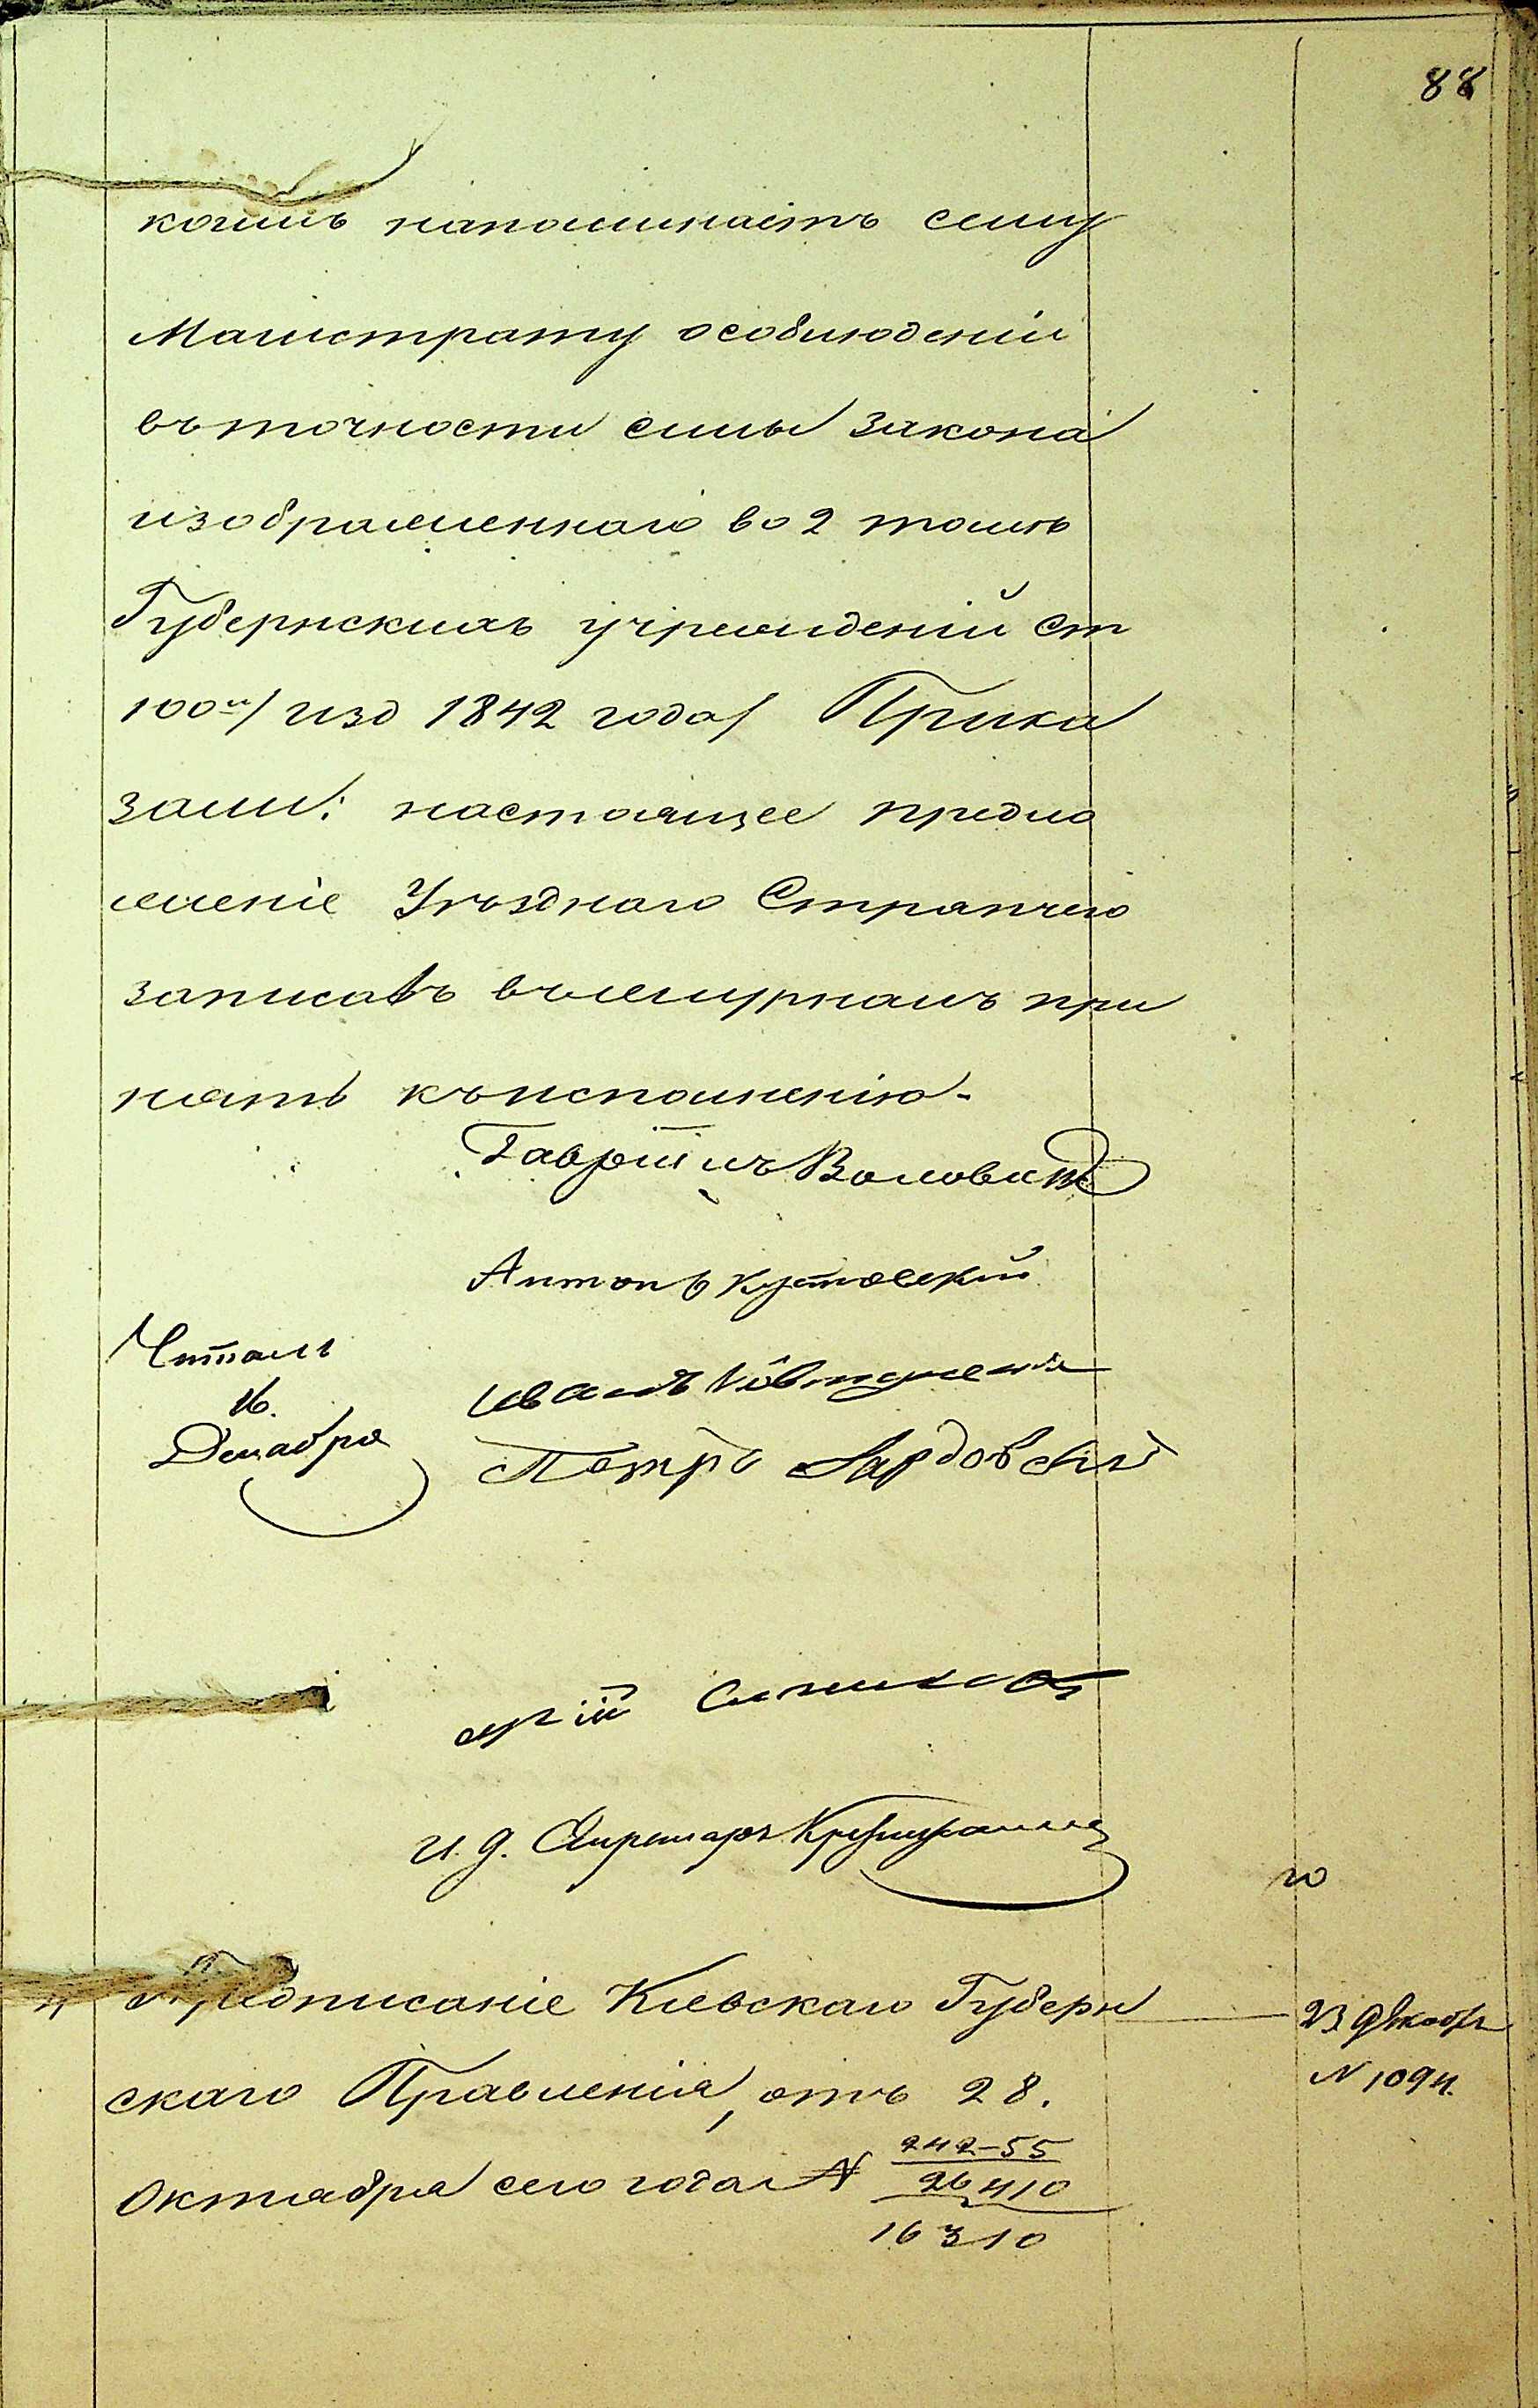 88
коимъ напоминаетъ сему
Магистрату особлюденіи
въ точности силы закона
изображеннаго во 2 томѣ
Губернскихъ учрежденій ст
100й / изд 1842 года / Прика
зали: настоящее предло
женіе Уѣзднаго Стряпчего
записать въ журналъ при
нять къ исполненію.
Гавріилъ
Антонъ Кутовскій
Читалъ
16.
Декабря
Иванъ
Петръ
И. д. Секретаря
го
Предписаніе Кіевскаго Губерн
скаго Правленія, отъ 28.
Октября сего года №
242-55
26410
16310
23 Декабр
N 1094.